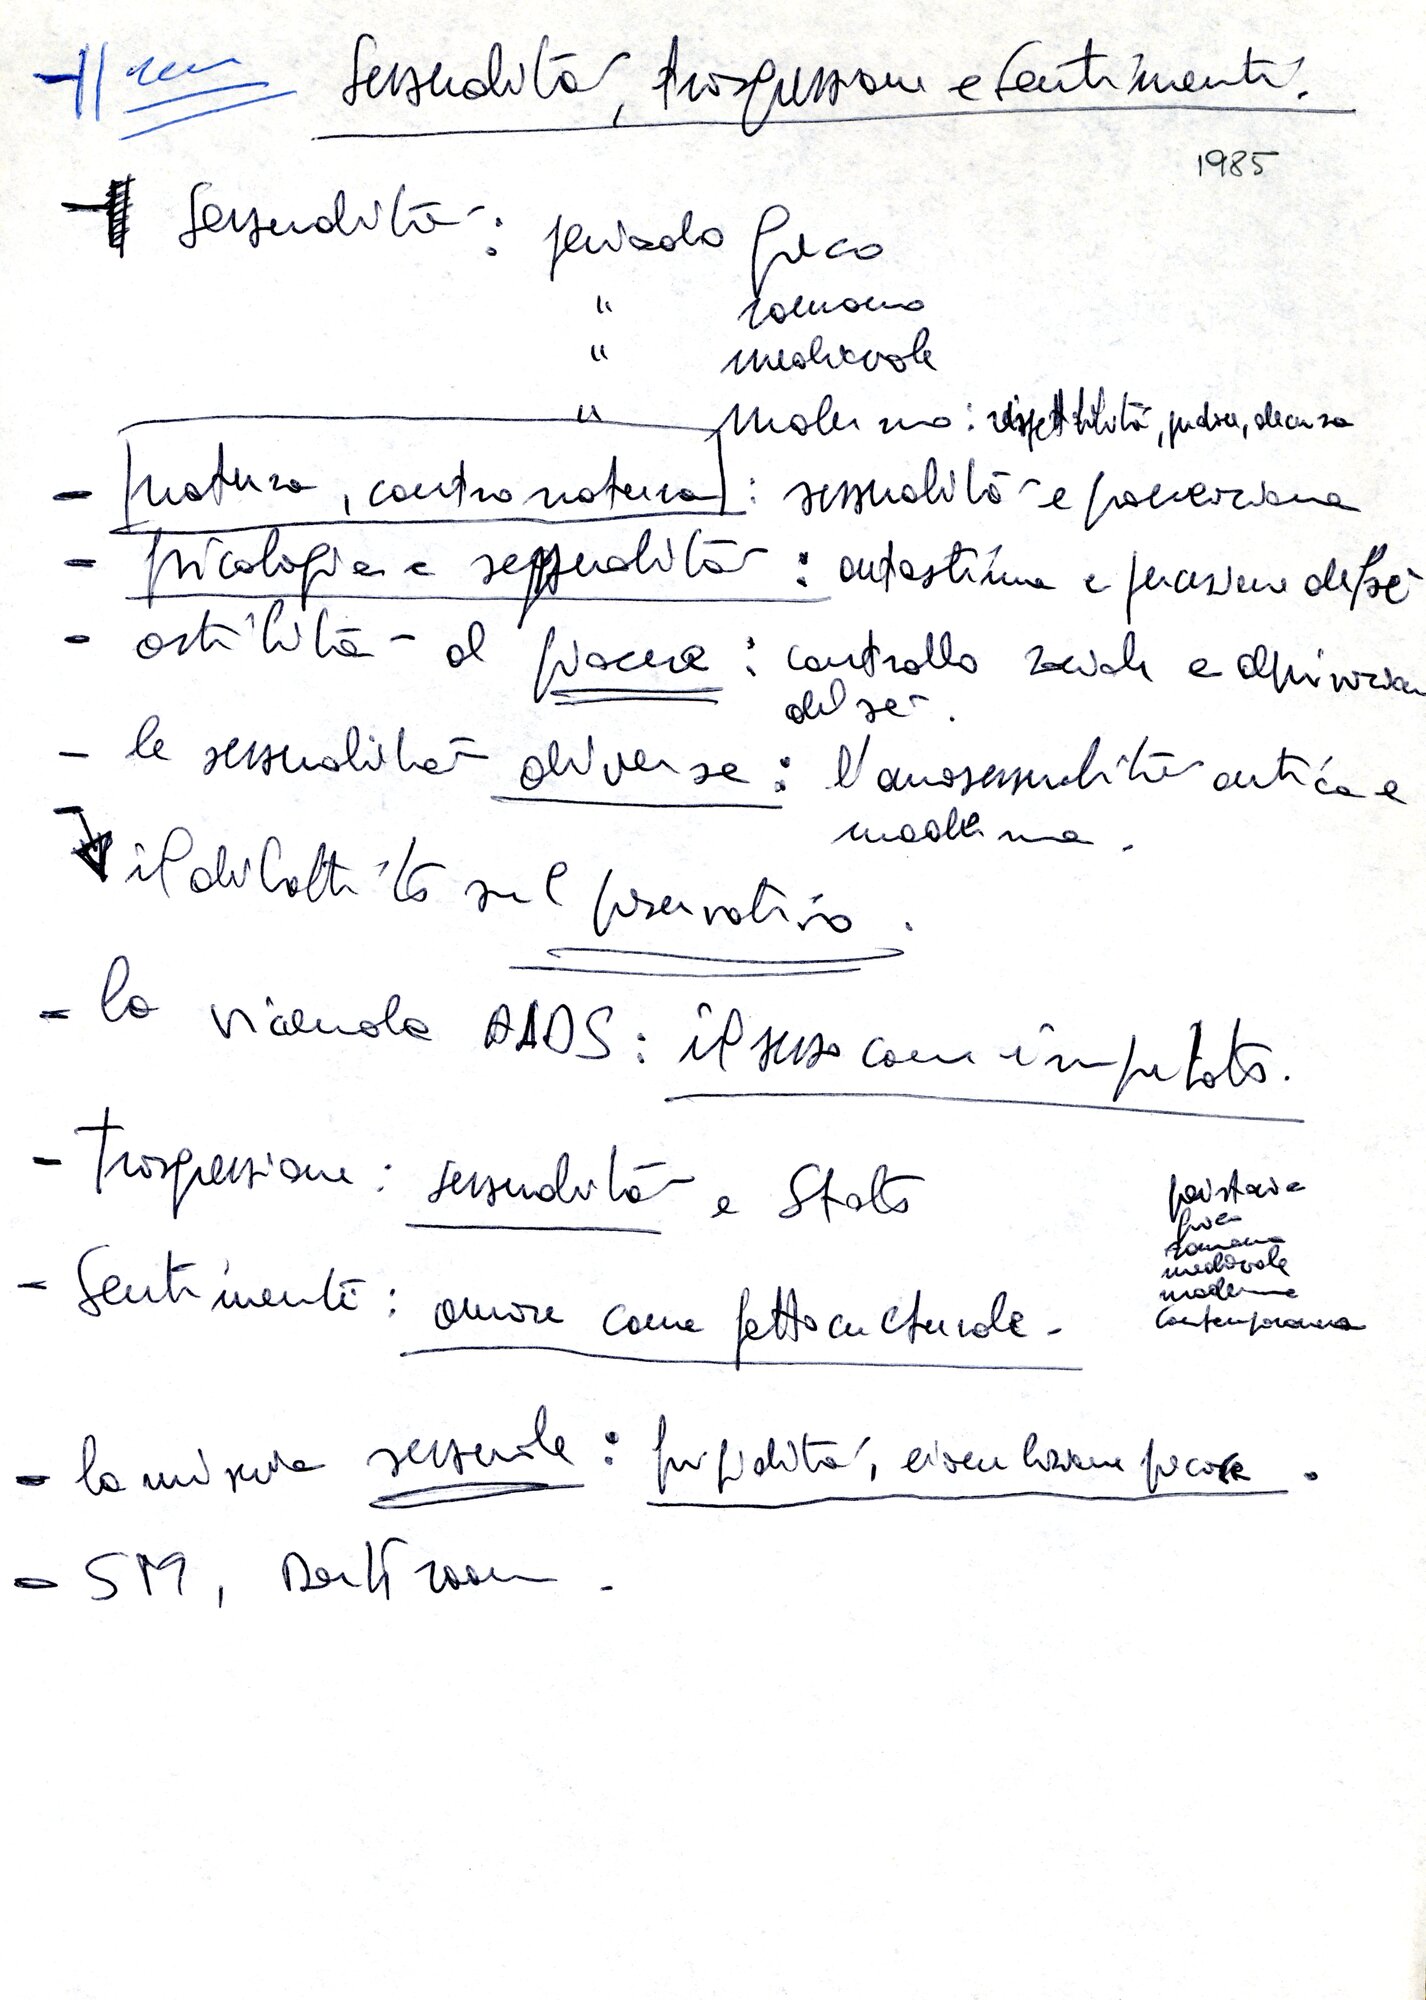 Sessualità, trasgressione e sentimenti.
1985
Sessualità: periodo greco
" romano
" medievale
" moderno: rispettabilità, pudore, decenza
- natura, contro natura: sessualità e procreazione
- psicologia e sessualità: autostima e percezione del sé
- ostilità al piacere: controllo sociale e
del sé.
- le sessualità diverse: l'omosessualità antica e
moderna.
il dibattito sul preservativo.
- la vicenda AIDS: il sesso come imputato.
- trasgressione: sessualità e Stato
preistoria
greca
romana
medievale
moderna
contemporanea
- Sentimenti: amore come fatto culturale -
- la miseria sessuale: frigidità, eiaculazione precoce.
- SM, Dark room -